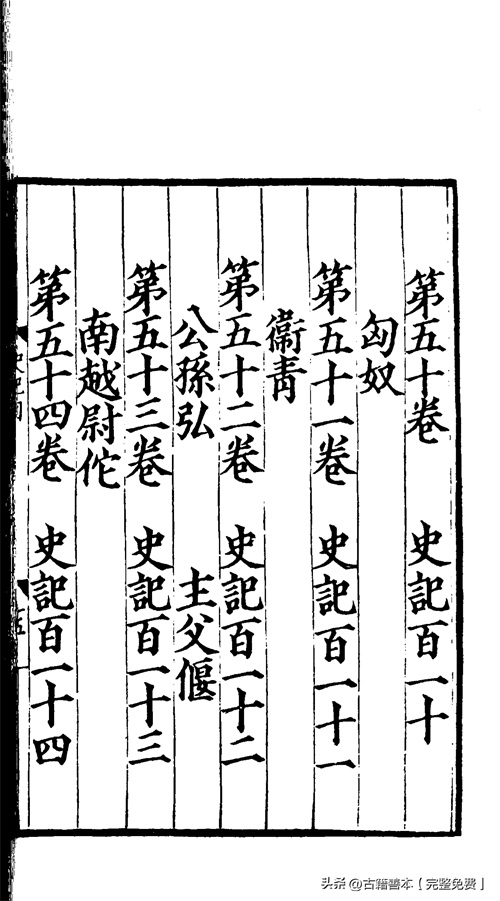 第五十卷 史記百一十
匈奴
第五十一卷 史記百一十一
衞青
第五十二卷 史記百一十二
公孫弘 主父偃
第五十三卷 史記百一十三
南越尉佗
第五十四卷 史記百一十四
頭條 @古籍善本【完整免费】